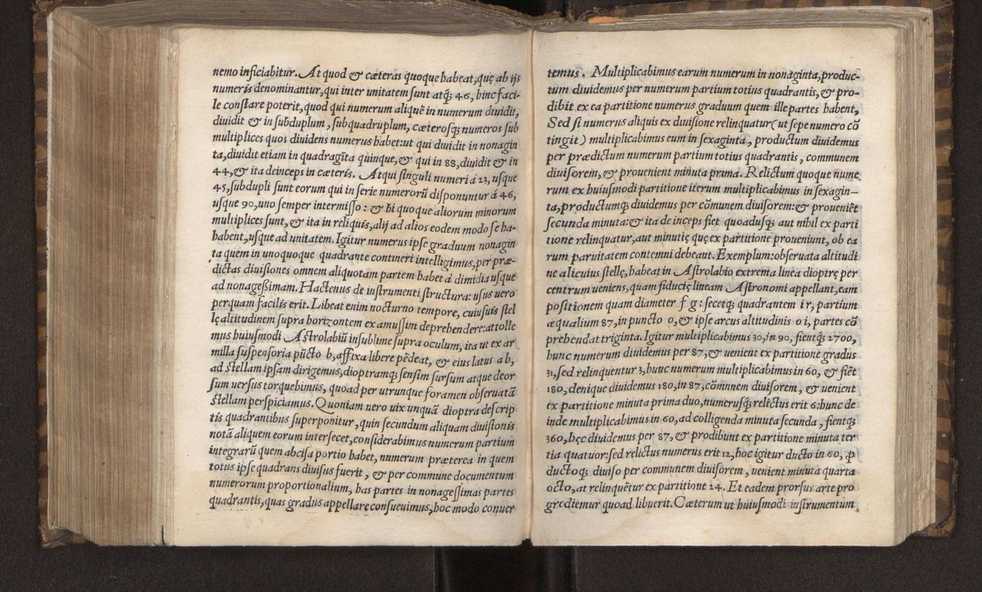 nemo inficiabitur. At quod & cæteras quoque habeat, quę ab ijs
numeris denominantur, qui inter unitatem sunt atq; 46, hinc faci-
le constare poterit, quod qui numerum aliquē in numerum diuidit,
diuidit & in subduplum, subquadruplum, cæterosq; numeros sub
multiplices quos diuidens numerus habet: ut qui diuidit in nonagin
ta, diuidit etiam in quadragīta quinque, & qui in 88, diuidit & in
44, & ita deinceps in cæteris. Atqui singuli numeri á 23, usque
45, subdupli sunt eorum qui in serie numerorū disponuntur á 46,
usque 90, uno semper intermisso: & hi quoque aliorum minorum
multiplices sunt, & ita in reliquis, alij ad alios eodem modo se ha-
habent, usque ad unitatem. Igitur numerus ipse graduum nonagin
ta quem in unoquoque quadrante contineri intelligimus, per præ-
dictas diuisiones omnem aliquotam partem habet á dimidia usque
ad nonagesimam. Hactenus de instrumenti structura: usus uero
perquam facilis erit. Libeat enim nocturno tempore, cuiusuis stel
lę altitudinem supra horizontem ex amussim deprehendere: attolle
mus huiusmodi Astrolabiū in sublime supra oculum, ita ut ex ar
milla suspensoria pūcto b, affixa libere pēdeat, & eius latus a b,
ad stellam ipsam dirigemus, dioptramq; sensim sursum atque deor
sum uersus torquebimus, quoad per utrunque foramen obseruatā
stellam perspiciamus. Quoniam uero uix unquā dioptra descrip-
tis quadrantibus superponitur, quin secundum aliquam diuisionis
notā aliquem eorum intersecet, considerabimus numerum partium
integrarū quem abcisa portio habet, numerum præterea in quem
totus ipse quadrans diuisus fuerit, & per commune documentum
numerorum proportionalium, has partes in nonagessimas partes
quadrantis, quas gradus appellare consueuimus, hoc modo conuer
temus. Multiplicabimus earum numerum in nonaginta, produc-
tum diuidemus per numerum partium totius quadrantis, & pro-
dibit ex ea partitione numerus graduum quem ille partes habent,
Sed si numerus aliquis ex diuisione relinquatur (ut sepe numero cō
tingit) multiplicabimus eum in sexaginta, productum diuidemus
per prædictum numerum partium totius quadrantis, communem
diuisorem, & prouenient minuta prima. Relictum quoque nume
rum ex huiusmodi partitione iterum multiplicabimus in sexagin-
ta, productumq; diuidemus per cōmunem diuisorem: & prouenièt
secunda minuta: & ita deinceps fiet quoadusq; aut nihil ex parti
tione relinquatur, aut minutię quę ex partitione proueniunt, ob ea
rum paruitatem contemni debeant. Exemplum: obseruata altitudi
ne alicuius stellę, habeat in Astrolabio extrema linea dioptrę per
centrum ueniens, quam fiducię lineam Astronomi appellant, eam
positionem quam diameter f g: secetq; quadrantem i r, partium
æqualium 87, in puncto o, & ipse arcus altitudinis o i, partes cō
prehendat triginta. Igitur multiplicabimus 30, in 90, fientq; 2700,
hunc numerum diuidemus per 87, & uenient ex partitione gradus
31, sed relinquentur 3, hunc numerum multiplicabimus in 60, & fiēt
180, denique diuidemus 180, in 87, cōmunem diuisorem, & uenient
ex partitione minuta prima duo, numerusq; relictus erit 6: hunc de
inde multiplicabimus in 60, ad colligenda minuta secunda, fientq;
360, hęc diuidemus per 87, & prodibunt ex partitione minuta ter
tia quatuor: sed relictus numerus erit 12, hoc igitur ducto in 60, ꝓ
ductoq; diuiso per communem diuisorem, uenient minuta quarta
octo, at relinquētur ex partitione 24. Et eadem prorsus arte pro
grediemur quod libuerit. Cæterum ut huiusmodi instrumentum